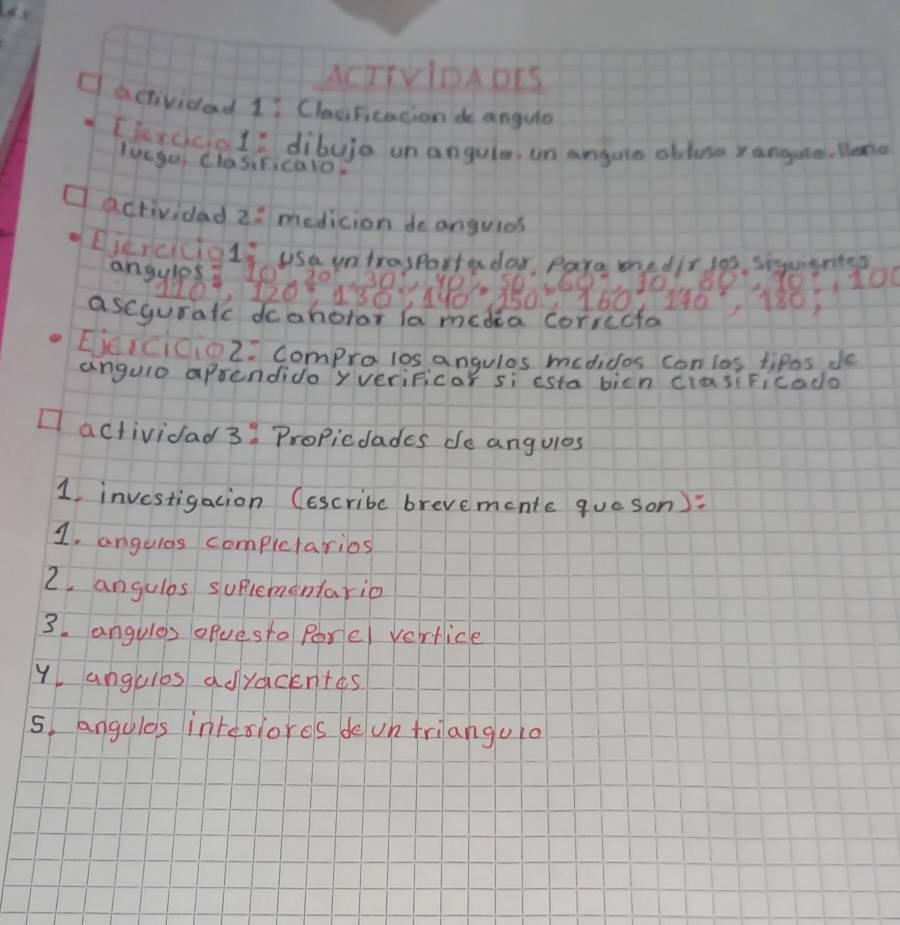 ACTIVIDADES
actividad 1: Clacificacion de angulo
• Ejercicio 1: dibuja un angulo, un angulo obtuso y angulo. llano
luego, clasificalo.
actividad 2: medicion de angulos
• Ejercicio 1: usa un trasportador. Para medir los. siguientes
angulos: 10°, 20°, 30°, 40°, 50°, 60°, 70, 80°, 90°, 100
110°, 120°, 130°, 140°, 150°, 160°, 170°, 180°,
asegurate de anotar la media correcta
• Ejercicio 2: compra los angulos medidos con los tipos de
angulo aprendido y verificar si esta bien clasificado
actividad 3: Propiedades de angulos
1. investigacion (escribe brevemente que son):
1. angulos completarios
2. angulos suplementario
3. angulos opuesto por el vertice
4. angulos adyacentes
5. angulos interiores de un triangulo